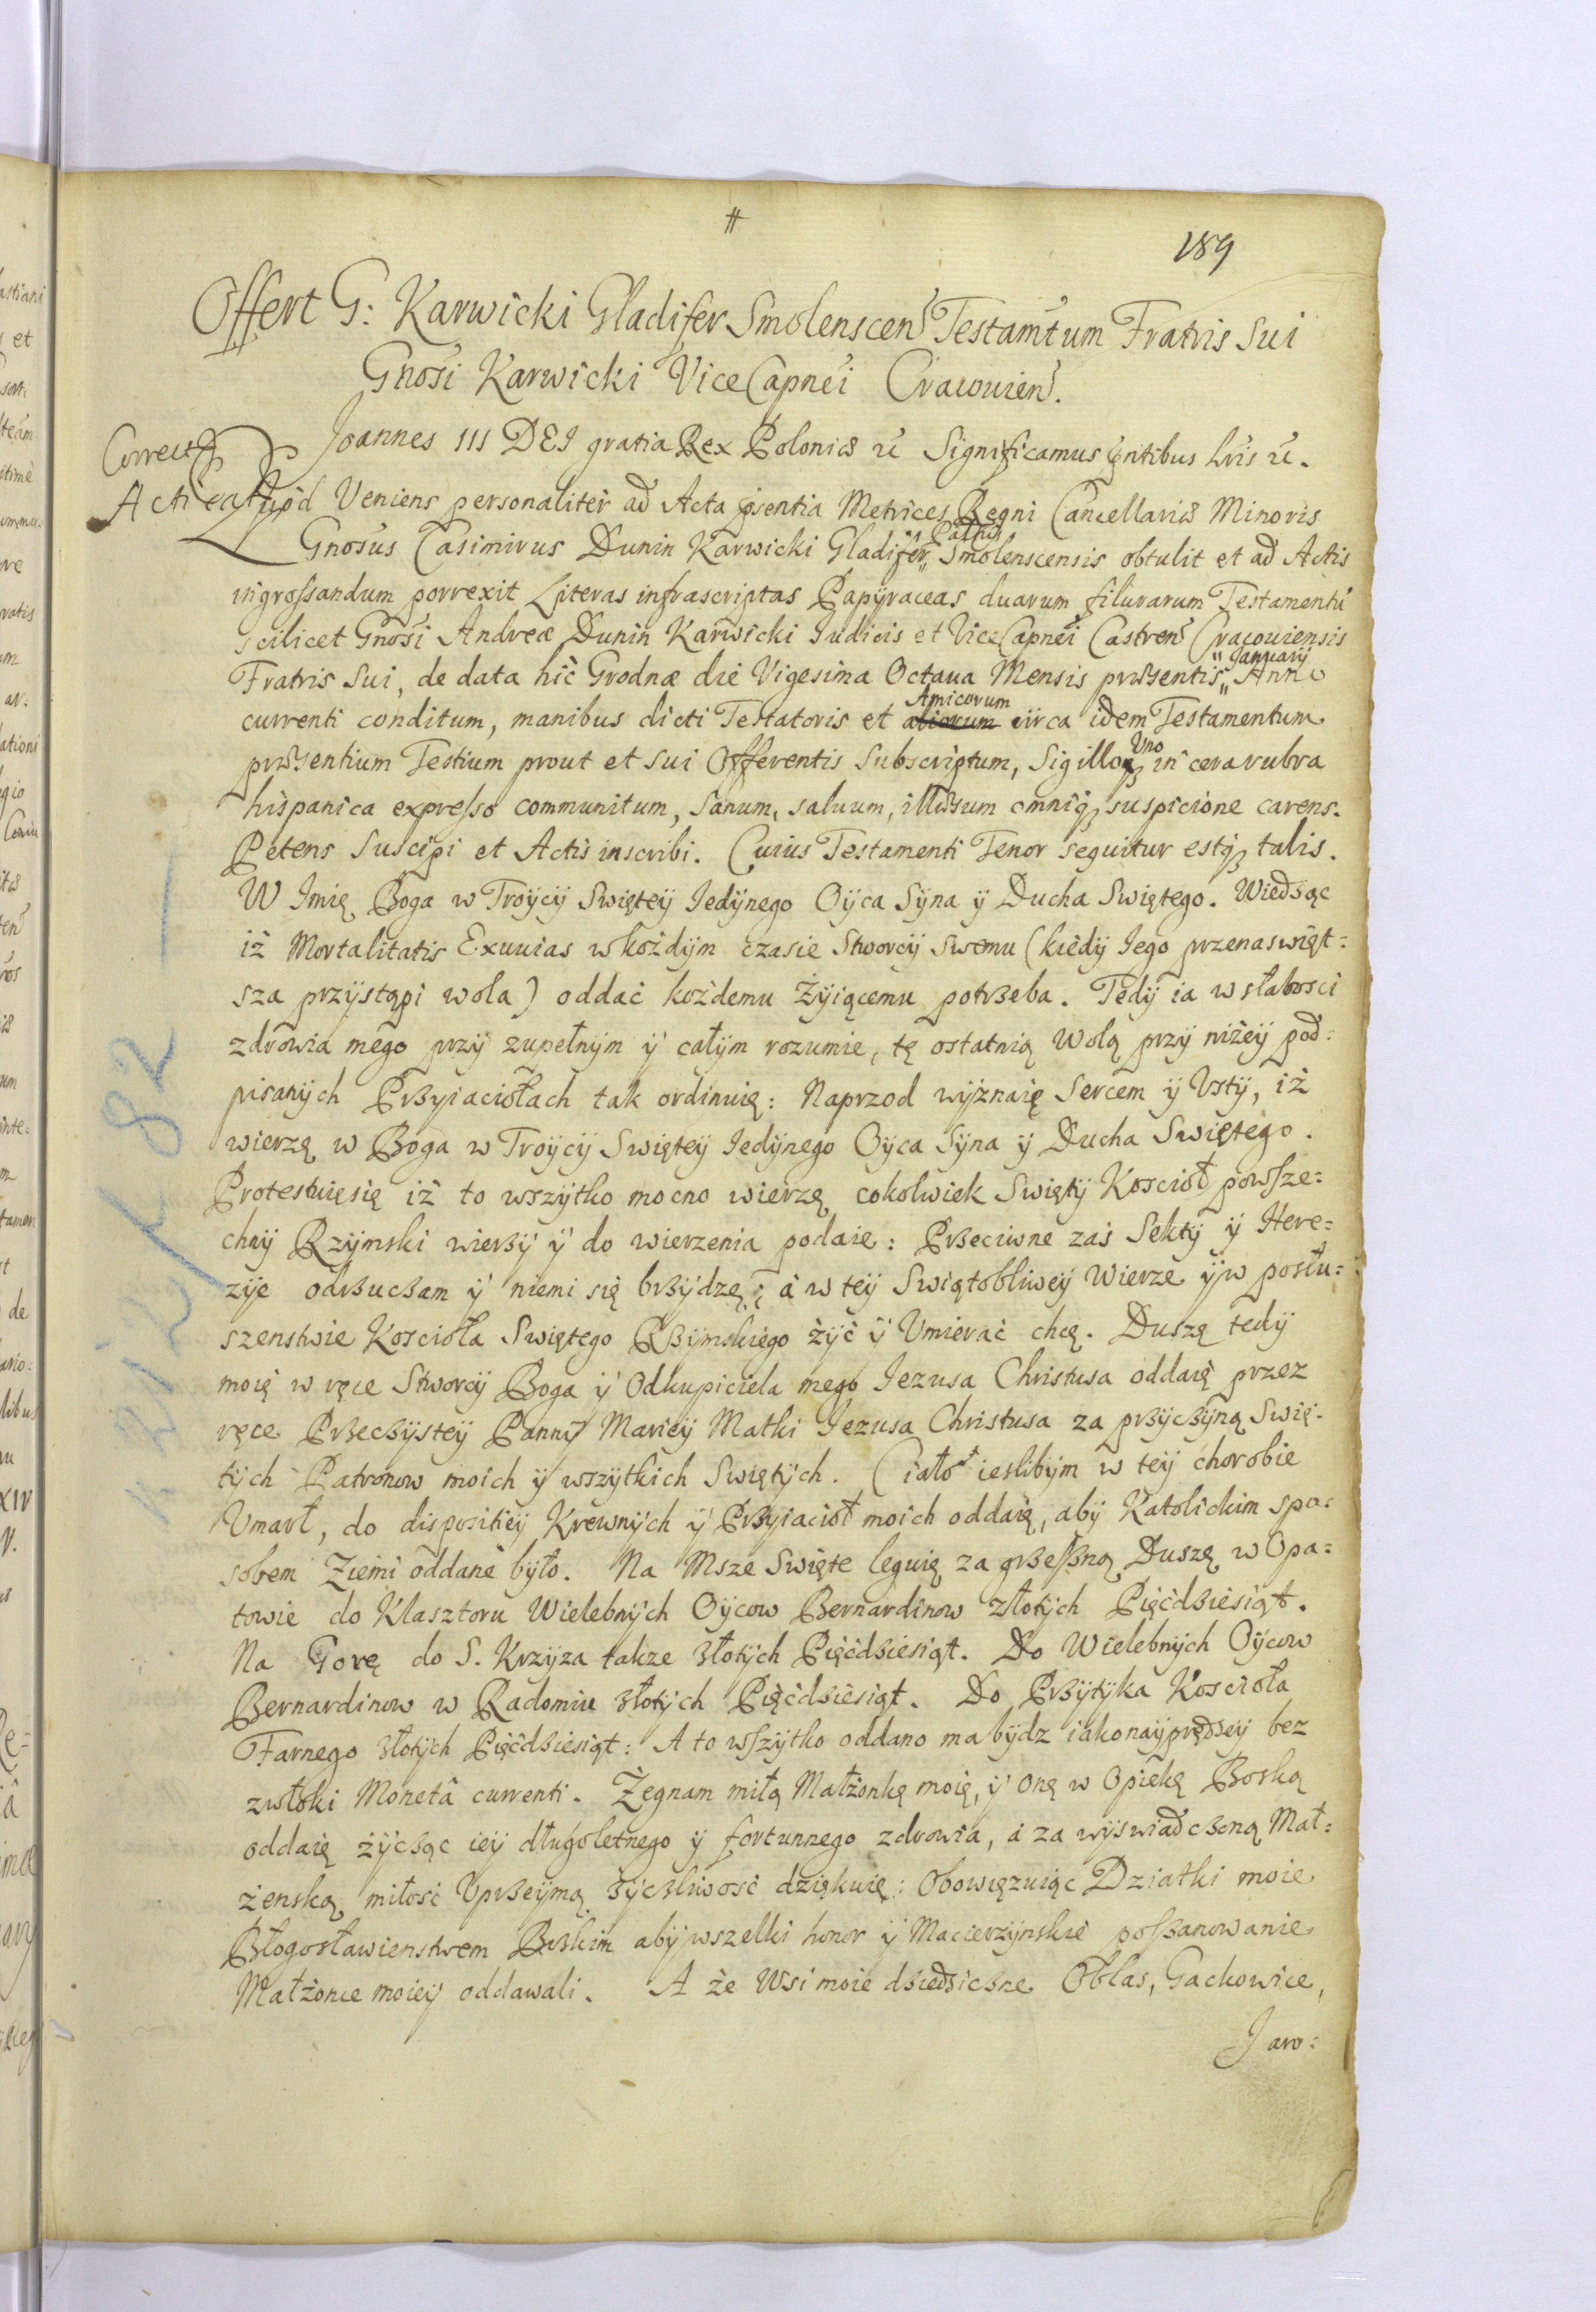 #
189
Offert G: Karwicki Gladifer Smolenscen Testamtum Fratris Sui
Gnosi Karwicki ViceCapnei Cracouien.
Correct
Joannes III DEI gratia Rex Poloniæ Significamus pntibus Lris
Acticat
Quod Veniens personaliter ad Acta pñsentia Metrices Regni Cancellariæ Minoris
Gnosus Casimirus Dunin Karwicki Gladifer, Smolenscensis obtulit et ad Actis
ingrossandum porrexit Literas infrascriptas Papÿraceas duarum filurarum Testamentu
scilicet Gnosi Andreæ Dunin Karwicki Iudicis et ViceCapnei Castren Cracouiensis
"Januarij
Fratris Sui, de data hic Grodnæ die Vigesima Octaua Mensis præsentis,, Anno
Amicorum
currenti conditum, manibus dicti Testatoris et aliorum circa idem Testamentum
Uno
præsentium Testium prout et sui Offerentis Subscriptum, Sigilloq in cera rubra
hispanica expresso communitum, Sanum, saluum, illæsum omniq suspicione carens.
Petens Suscipi et Actis inscribi. Cuius Testamenti Tenor sequitur estq talis.
W Imię Boga w Troÿcÿ Swiętey Iedÿnego Oÿca Sÿna ÿ Ducha Swiętego. Wiedząc
iż Mortalitatis Exuuias w kożdÿm czasie Stworcÿ Swemu (kiedÿ Iego przenaswięt:
sza przÿstąpi wola) oddać kożdemu Żÿiącemu potrzeba. Tedÿ ia w słabosci
zdrowia mego przÿ zupełnÿm ÿ całÿm rozumie, tę ostatnią wolą przÿ niżeÿ pod:
pisanÿch Przyiaciołach tak ordinuię: Naprzod wÿznaię Sercem ÿ Vstÿ, iż
wierzę w Boga w Troÿcÿ Swięteÿ Iedÿnego Oÿca Sÿna ÿ Ducha Swiętego.
Protestuię się iż to wszÿtko mocno wierzę cokolwiek Swiętÿ Koscioł powsze:
chnÿ Rzÿmski wierzÿ ÿ do wierzenia podaie: Przeciwne zas Sektÿ ÿ Here:
zÿe odrzucam ÿ niemi się brzÿdzę; a w teÿ Swiątobliweÿ Wierze ÿ w posłu:
szenstwie Koscioła Swiętego Rzÿmskiego żÿć ÿ Vmierać chcę. Duszę tedÿ
moię w ręce Stworcÿ Boga ÿ Odkupiciela mego Iezusa Christusa oddaię przez
ręce Przeczÿsteÿ Pannÿ Marieÿ Matki Iezusa Christusa za przÿczÿną Swię:
tÿch Patronow moich ÿ wszÿtkich Swiętÿch. Ciało ieslibÿm w teÿ chorobie
Vmarł, do dispositieÿ Krewnÿch ÿ Przyiacioł moich oddaię, abÿ Katolickim spo:
sobem Ziemi oddane bÿło. Na Msze Swięte leguię za grzeszną Duszę w Opa:
towie do Klasztoru Wielebnÿch Oÿcow Bernardinow złotÿch Pięćdziesiąt.
Na Gorę do S. Krzÿza takze złotÿch Pięćdziesiąt. Do Wielebnÿch Oÿcow
Bernardinow w Radomiu złotÿch Pięćdziesiąt. Do Przÿtÿka Koscioła
Farnego złotÿch Pięćdziesiąt: A to wszÿtko oddano ma bÿdz iako naÿprędzeÿ bez
zwłoki Monetâ currenti. Żegnam miłą Małżonkę moię, ÿ onę w Opiekę Boską
oddaię żÿcząc ieÿ długoletnego ÿ fortunnego zdrowia, a za wÿswiadczoną Mał:
żenską miłość Vprzeÿmą zÿczliwosć dziękuię: Obowięzuiąc Dziatki moie
Błogosławienstwem Boskim abÿ wszelki honor ÿ Macierzÿnskie poszanowanie
Małżonce moieÿ oddawali. A że Wsi moie dziedziczne Oblas, Gackowice,
Jaro: